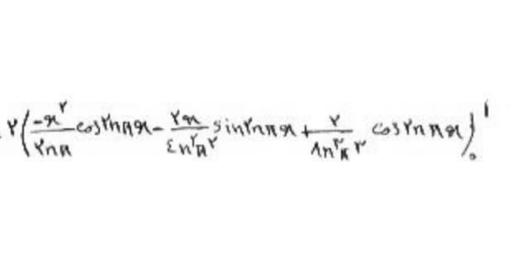 ۲(\frac{-x^۲}{۲nπ} cos۲nπx - \frac{۲x}{٤n^۲π^۲} sin۲nπx + \frac{۲}{۸n^۳π^۳} cos۲nπx)_۰^۱